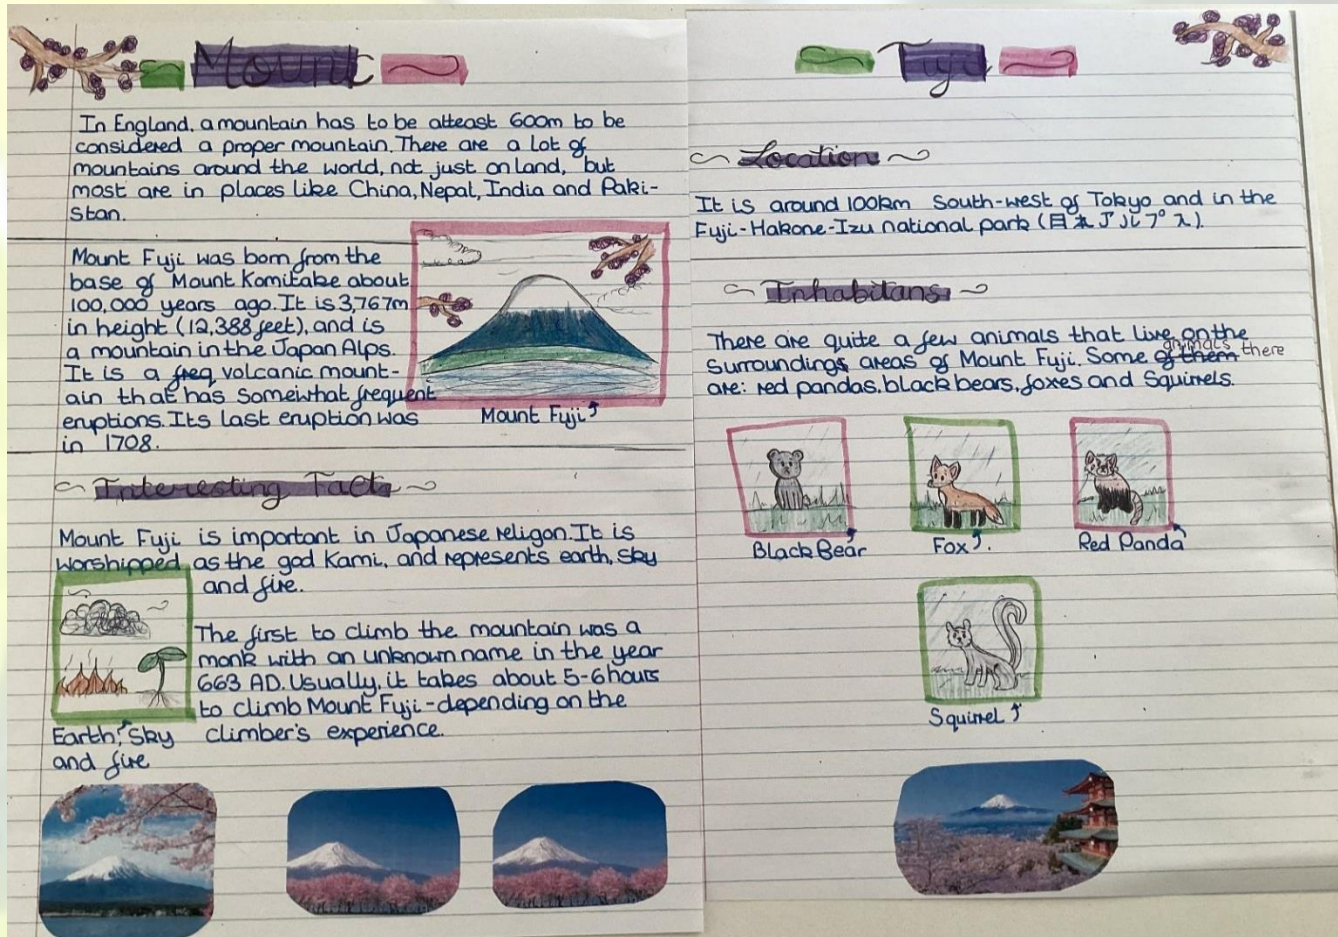 Mount
In England, a mountain has to be atleast 600m to be
considered a proper mountain. There are a lot of
mountains around the world, not just on land, but
most are in places like China, Nepal, India and Paki-
stan.
Mount Fuji was born from the
base of Mount Komitake about
100,000 years ago. It is 3,767m
in height (12,388 feet), and is
a mountain in the Japan Alps.
It is a freq volcanic mount-
ain that has somewhat frequent
eruptions. Its last eruption was
in 1708.
Mount Fuji
Interesting Facts
Mount Fuji is important in Japanese religon. It is
worshipped as the god Kami, and represents earth, sky
and fire.
The first to climb the mountain was a
monk with an unknown name in the year
663 AD. Usually, it takes about 5-6 hours
to climb Mount Fuji - depending on the
climber's experience.
Earth, Sky
and fire
Fuji
Location
It is around 100km South-west of Tokyo and in the
Fuji-Hakone-Izu national park (目本アルプス).
Inhabitans
There are quite a few animals that live on the
surroundings areas of Mount Fuji. Some of them animals there
are: red pandas, black bears, foxes and squirrels.
Black Bear
Fox.
Red Panda
Squirrel